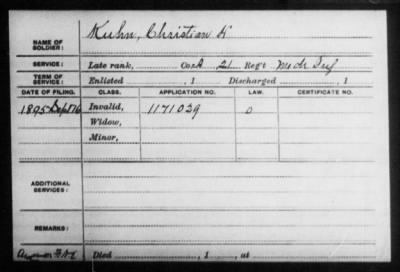 NAME OF SOLDIER: Kuhn, Christian
SERVICE: Late rank, Co. A 21 Reg't Inf
TERM OF SERVICE: Enlisted , 1 Discharged , 1
DATE OF FILING. CLASS. APPLICATION NO. LAW. CERTIFICATE NO.
1895 Sept 16 Invalid, 1171029
Widow,
Minor,
ADDITIONAL SERVICES:
REMARKS:
Died , 1 , at